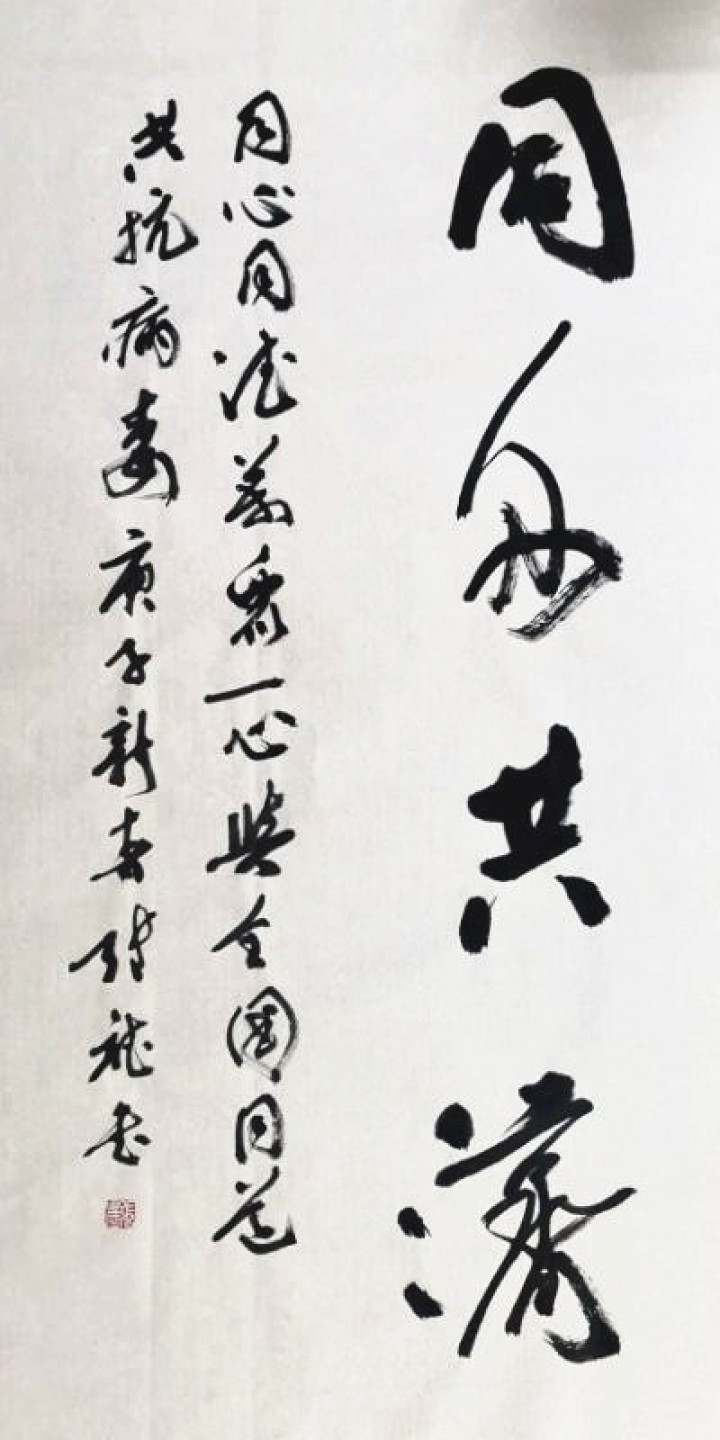 同舟共濟
同心同德萬衆一心與全國同道
共抗病毒庚子新春龍書